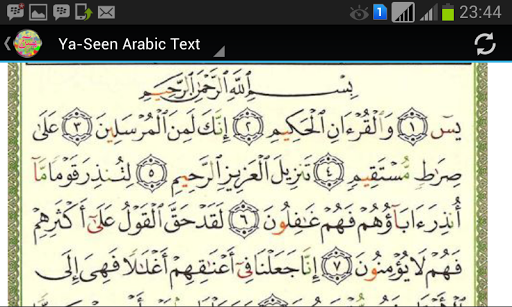 23:44
Ya-Seen Arabic Text
بِسْمِ اللَّهِ الرَّحْمَٰنِ الرَّحِيمِ
يسٓ ﴿١﴾ وَالْقُرْءَانِ الْحَكِيمِ ﴿٢﴾ إِنَّكَ لَمِنَ الْمُرْسَلِينَ ﴿٣﴾ عَلَىٰ
صِرَاطٍ مُّسْتَقِيمٍ ﴿٤﴾ تَنزِيلَ الْعَزِيزِ الرَّحِيمِ ﴿٥﴾ لِتُنذِرَ قَوْمًا مَّآ
أُنذِرَ ءَابَآؤُهُمْ فَهُمْ غَٰفِلُونَ ﴿٦﴾ لَقَدْ حَقَّ الْقَوْلُ عَلَىٰٓ أَكْثَرِهِمْ
فَهُمْ لَا يُؤْمِنُونَ ﴿٧﴾ إِنَّا جَعَلْنَا فِىٓ أَعْنَٰقِهِمْ أَغْلَٰلًا فَهِىَ إِلَى